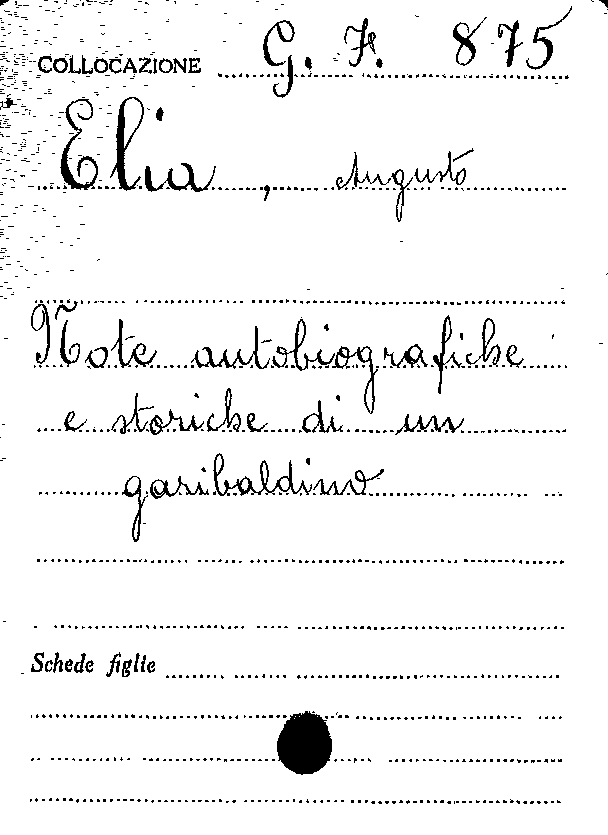 COLLOCAZIONE G. F. 875
Elia, Augusto
Note autobiografiche
e storiche di un
garibaldino
Schede figlie